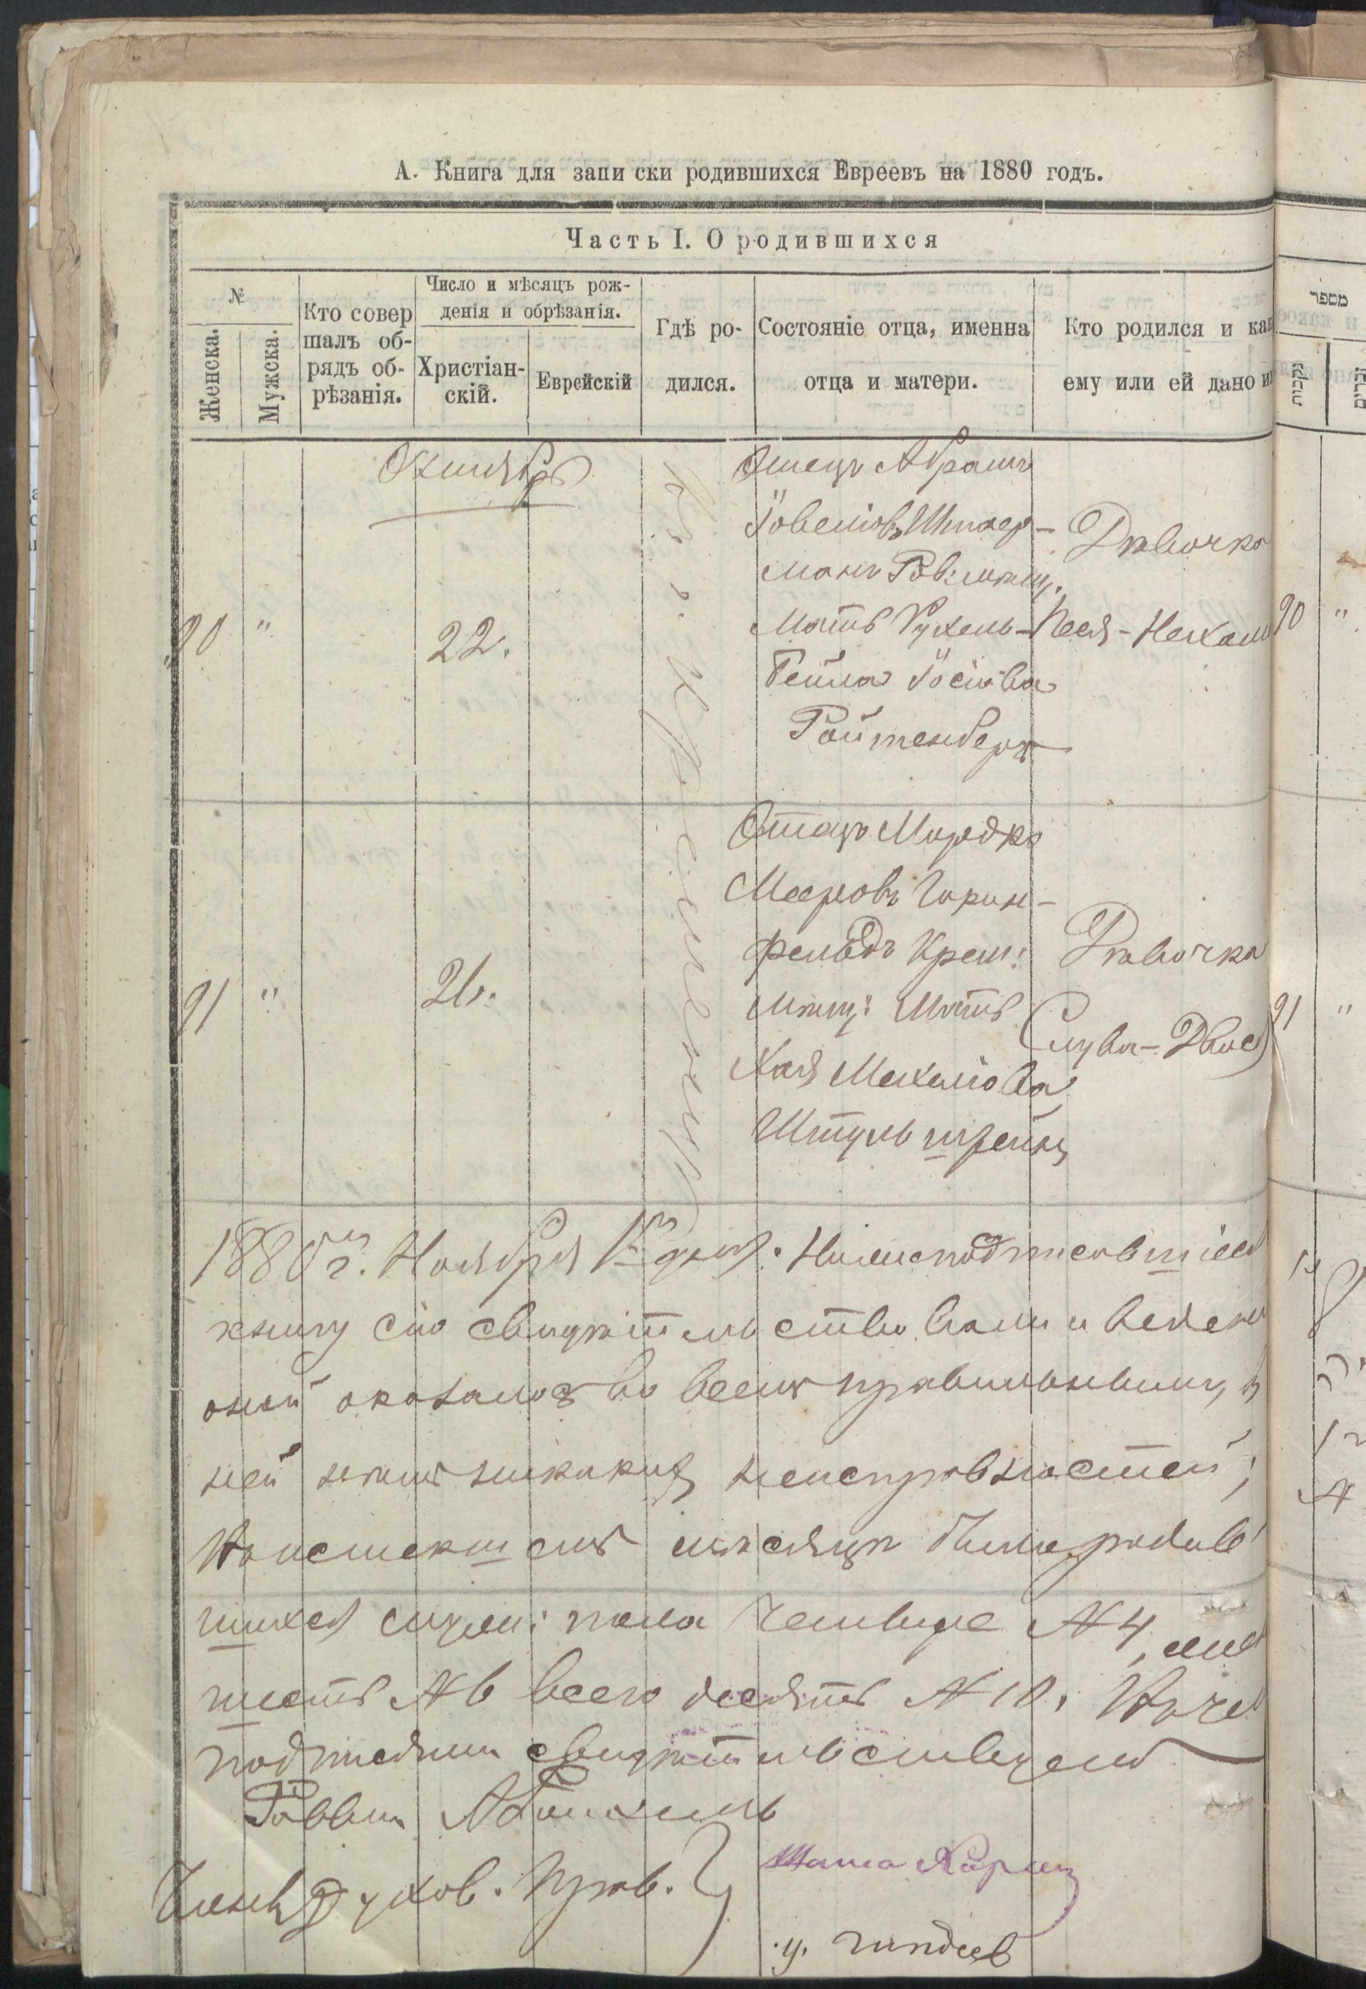 А. Книга для записки родившихся Евреевъ на 1880 годъ.
Часть I. О родившихся
№
Женска.
Мужска.
Кто совер
шалъ об-
рядъ об-
рѣзанія.
Число и мѣсяцъ рож-
денія и обрѣзанія.
Христіан-
скій.
Еврейскій
Гдѣ ро-
дился.
Состояніе отца, именна
отца и матери.
Кто родился и как
ему или ей дано и
Октябрь
90
"
22.
Отецъ Абрамъ
Іовеліовъ Шпаер-
манъ Ров: мѣщ.
Мать Рухель-
Бейла Іосіова
Ройтенбергъ
Дѣвочка
Песя-Нехам
91
"
26.
въ г. Кременцѣ
Отецъ Мордко
Мееровъ Горин-
фельдъ Крем:
мѣщ: Мать
Хая Мехеліова
Штульштейнъ
Дѣвочка
Слува-Двося
1880 г. Ноября 1 дня. Нижеподписавшіеся
книгу сію свидѣтельствовали и веденіе
оной оказалось во всемъ правильнымъ, въ
ней нѣтъ никакихъ неисправностей;
Въ истекшемъ мѣсяцѣ было родив
шихся мужс: пола Четыре № 4, жен
шесть № 6 всего десять № 10. Въ чемъ
подписями свидѣтельствуемъ
Раввинъ
Члены Духов. Прав.
מספר
נקבות
זכרים
90
"
91
"